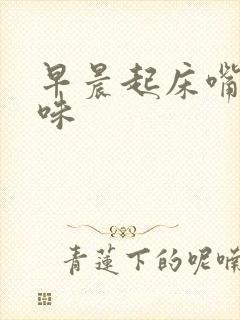 早晨起床嘴
咪
青莲下的呢喃